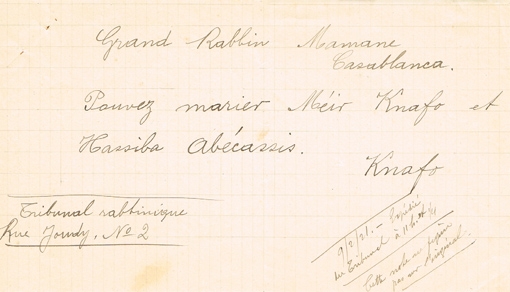 Grand Rabbin Mamane
Casablanca.
Pouvez marier Méir Knafo et
Hassiba Abécassis.
Knafo
Tribunal rabbinique
Rue Jourdy, No 2
9/2/21. — Expédié
du Tribunal à 11 h.
Cette note ne figure
pas sur l'original.